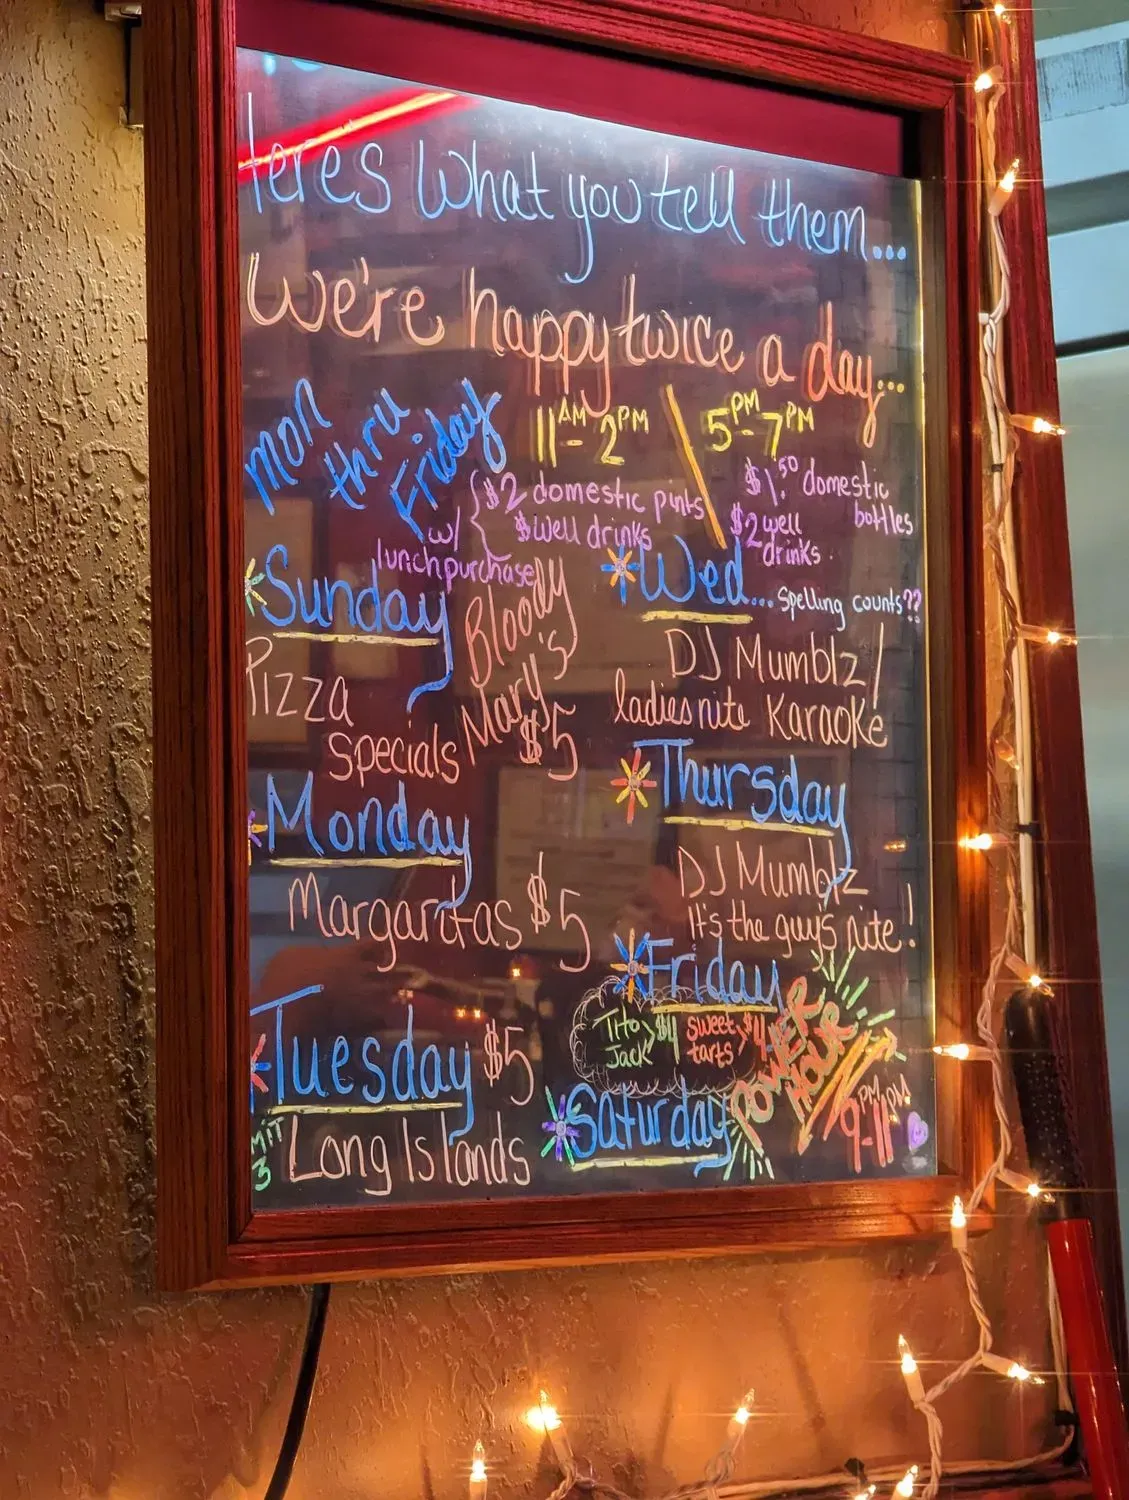 eres What you tell them...
We're happy twice a day...
Mon thru Friday
11AM - 2PM / 5PM - 7PM
w/ lunch purchase
$2 domestic pints
$well drinks
$1.50 domestic bottles
$2 well drinks
Sunday
Pizza Specials
Bloody Mary's $5
Monday
Margaritas $5
Tuesday $5
MIT 3
Long Islands
Wed... spelling counts??
DJ Mumblz /
ladies nite Karaoke
Thursday
DJ Mumblz
It's the guy's nite!
Friday
Tito Jack > $4
sweet tarts > $4
Saturday
POWER HOUR
9PM-11PM